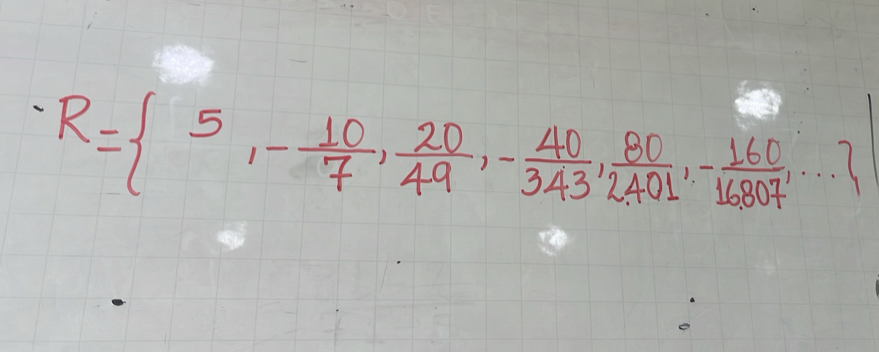 R = { 5 , - 10/7 , 20/49 , - 40/343 , 80/2.401 , - 160/16.807 , ... }